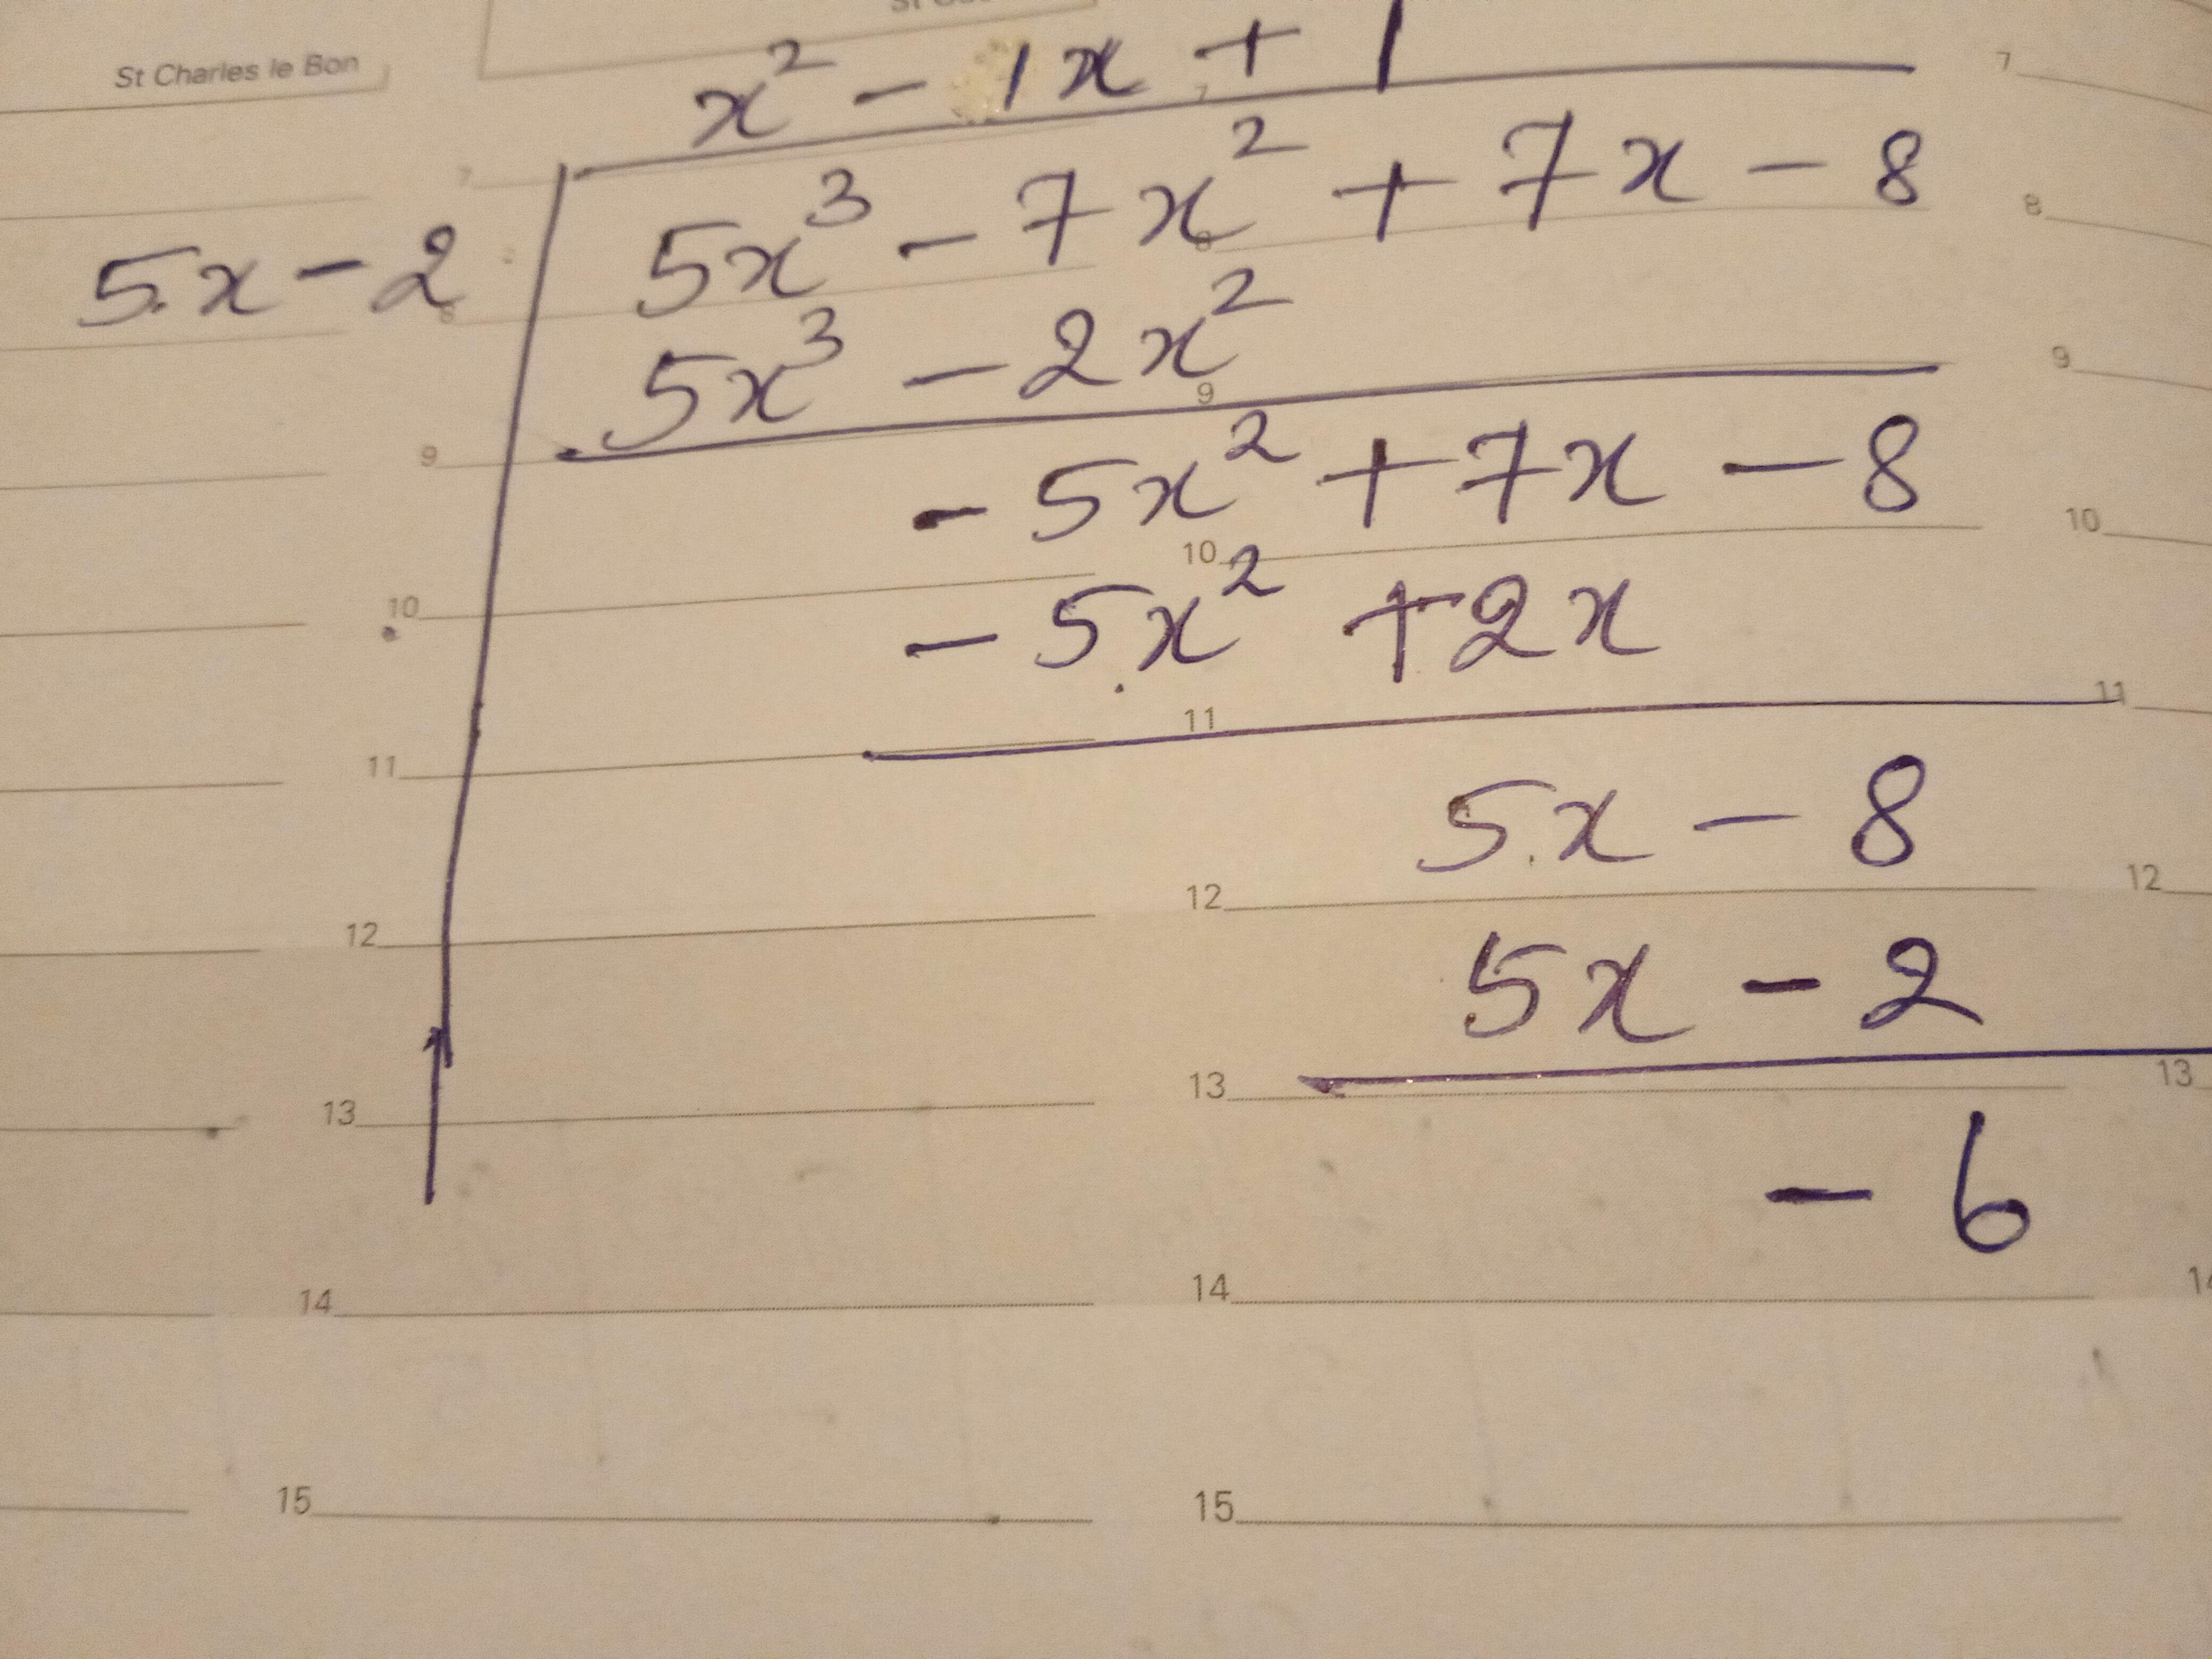 St Charles le Bon
x² - 1x + 1
5x - 2
5x³ - 7x² + 7x - 8
5x³ - 2x²
- 5x² + 7x - 8
- 5x² + 2x
5x - 8
5x - 2
- 6
7 7 7
8 8 8
9 9 9
10 10 10
11 11 11
12 12 12
13 13 13
14 14
15 15